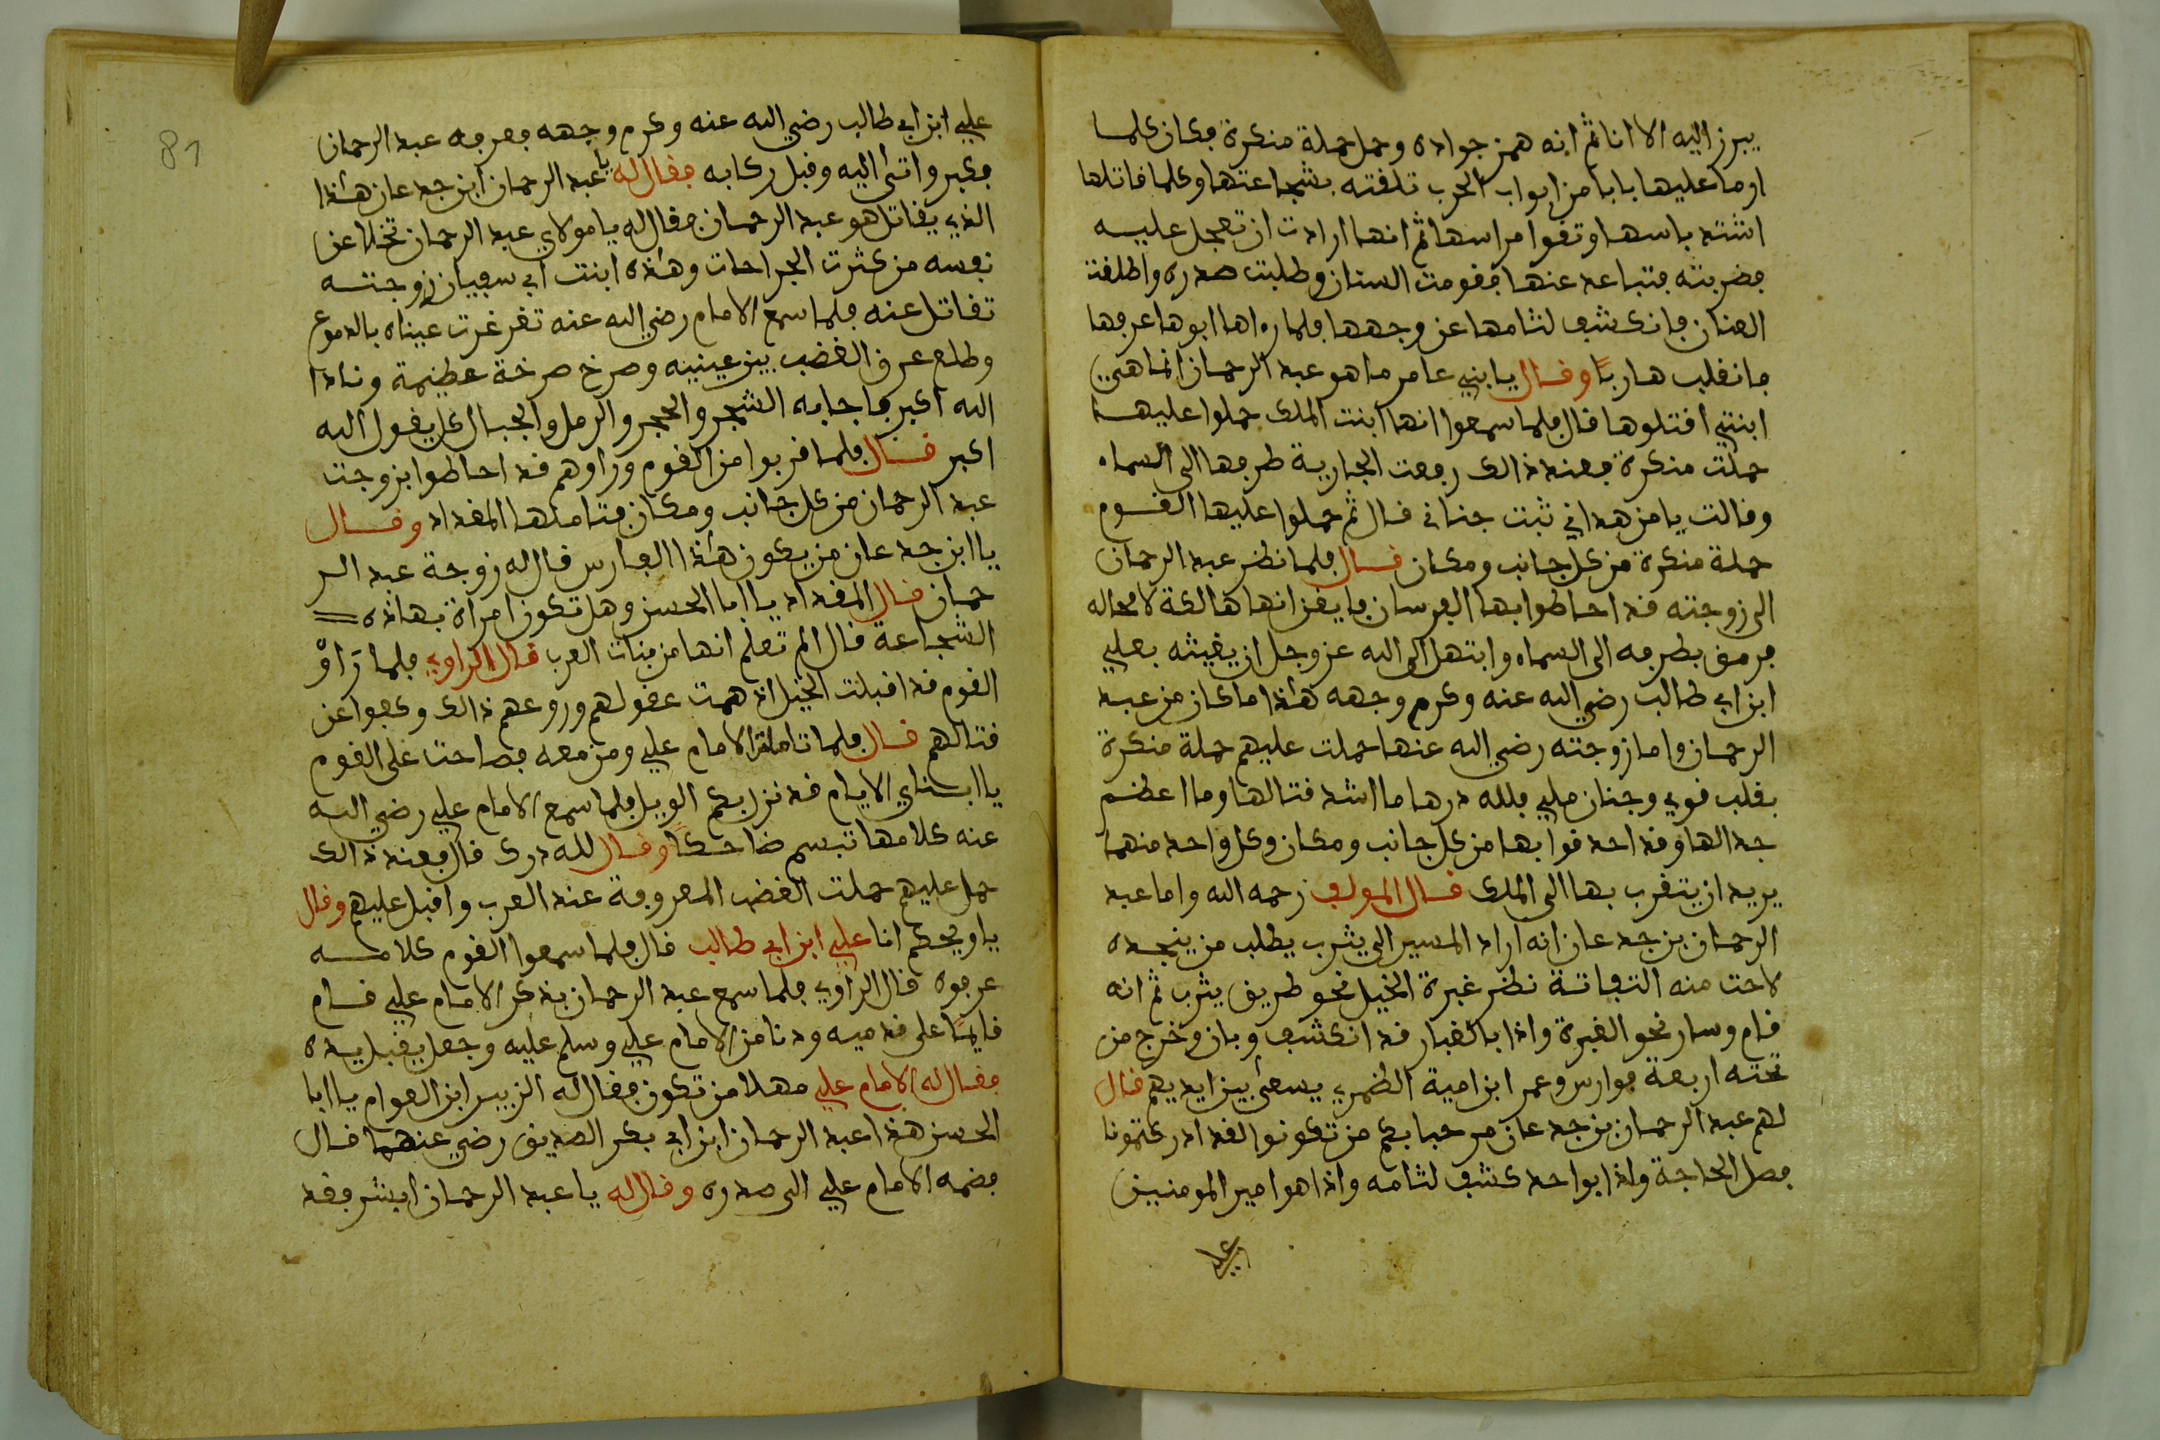 يبرز اليه الا انا ثم انه همز جواده وحمل حملة منكرة فكان كلما
اوما عليها بابا من ابواب الحرب تلقته بشجاعتها وكلما قاتلها
اشتد باسها وتقوا مراسها ثم انها ارادت ان تعجل عليه
فضربته فتباعد عنها فقومت السنان وطلبت صدره واطلقت
العنان فانكشف لثامها عن وجهها فلما رءاها ابوها عرفها
فانقلب هاربا وقال يا بني عامر ما هو عبد الرحمان انما هي
ابنتي اقتلوها قال فلما سمعوا انها ابنت الملك حملوا عليها
حملت منكرة فعند ذالك رفعت الجارية طرفها الى السماء
وقالت يا من هداني ثبت جناني قال ثم حملوا عليها القوم
حملة منكرة من كل جانب ومكان قال فلما نظر عبد الرحمان
الى زوجته قد احاطوا بها الفرسان فايقن انها هالكة لا محاله
فرمق بطرفه الى السماء وابتهل الى الله عز وجل ان يغيثه بعلي
ابن ابي طالب رضي الله عنه وكرم وجهه هذا ما كان من عبد
الرحمان واما زوجته رضي الله عنها حملت عليهم حملة منكرة
بقلب قوي وجنان ملي فلله درها ما اشد قتالها وما اعظم
جدالها وقد احدقوا بها من كل جانب ومكان وكل واحد منهما
يريد ان يتقرب بها الى الملك قال المولف رحمه الله واما عبد
الرحمان بن جدعان انه اراد المسير الى يثرب يطلب من ينجده
لاحت منه التفاتة نظر غبرة الخيل نحو طريق يثرب ثم انه
قام وسار نحو الغبرة واذا بالغبار قد انكشف وبان وخرج من
تحته اربعة فوارس وعمر ابن امية الظمري يسعى بين ايديهم قال
لهم عبد الرحمان بن جدعان مرحبا بكم من تكونوا لقد ادركتمونا
فصل الحاجة واذا بواحد كشف لثامه واذا هو امير المومنين
علي
81
علي ابن ابي طالب رضي الله عنه وكرم وجهه فعرفه عبد الرحمان
فكبر واتى اليه وقبل ركابه فقال له يا عبد الرحمان ابن جدعان هذا
الذي يقاتل هو عبد الرحمان فقال له يا مولاي عبد الرحمان تخلا عن
نفسه من كثرت الجراحات وهذه ابنت ابي سفيان زوجته
تقاتل عنه فلما سمع الامام رضي الله عنه تغرغرت عيناه بالدموع
وطلع عرق الغضب بين عينيه وصرخ صرخة عظيمة ونادا
الله اكبر فاجابه الشجر والحجر والرمل والجبال كل يقول الله
اكبر قال فلما قربوا من القوم وراوهم قد احاطوا بزوجت
عبد الرحمان من كل جانب ومكان فتاملها المقداد وقال
يا ابن جدعان من يكون هذا الفارس قال له زوجة عبد الر
حمان قال المقداد يا ابا الحسن وهل تكون امراة بهاذه
الشجاعة قال الم تعلم انها من بنات العرب قال الراوي فلما راو
القوم قد اقبلت الخيل اندهمت عقولهم وروعهم ذالك وكفوا عن
قتالهم قال فلما تاملت الامام علي ومن معه فصاحت على القوم
يا ابناي الايام قد نزل بكم الويل فلما سمع الامام علي رضي الله
عنه كلامها تبسم ضاحكا وقال لله درك قال فعند ذالك
حمل عليهم حملت الغضب المعروفة عند العرب واقبل عليهم وقال
يا ويحكم انا علي ابن ابي طالب قال فلما سمعوا القوم كلامه
عرفوه قال الراوي فلما سمع عبد الرحمان بذكر الامام علي قام
قايما على قدميه ودنا من الامام علي وسلم عليه وجعل يقبل يده
فقال له الامام علي مهلا من تكون فقال له الزبير ابن العوام يا ابا
الحسن هذا عبد الرحمان ابن ابي بكر الصديق رضي عنهما قال
فضمه الامام علي الى صدره وقال له يا عبد الرحمان ابشر فقد